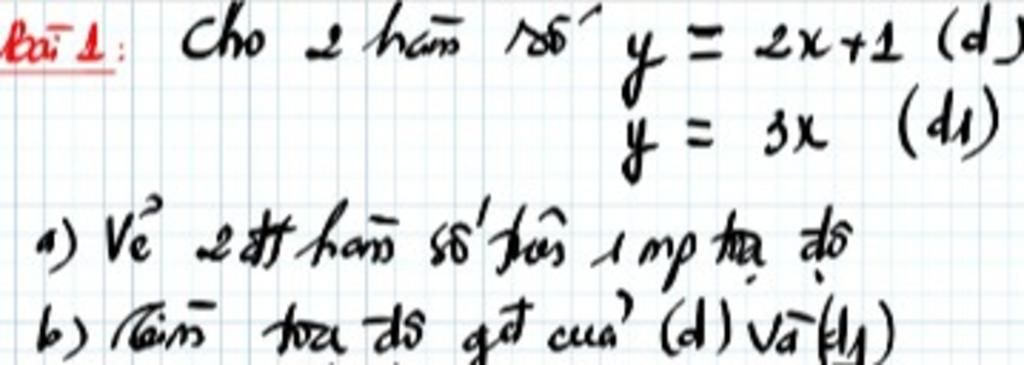 Bài 1: Cho 2 hàm số y = 2x+1 (d)
y = 3x (d1)
a) Vẽ 2 đt hàm số trên 1 mp tọa độ
b) Tìm tọa độ gđ của (d) và (d1)